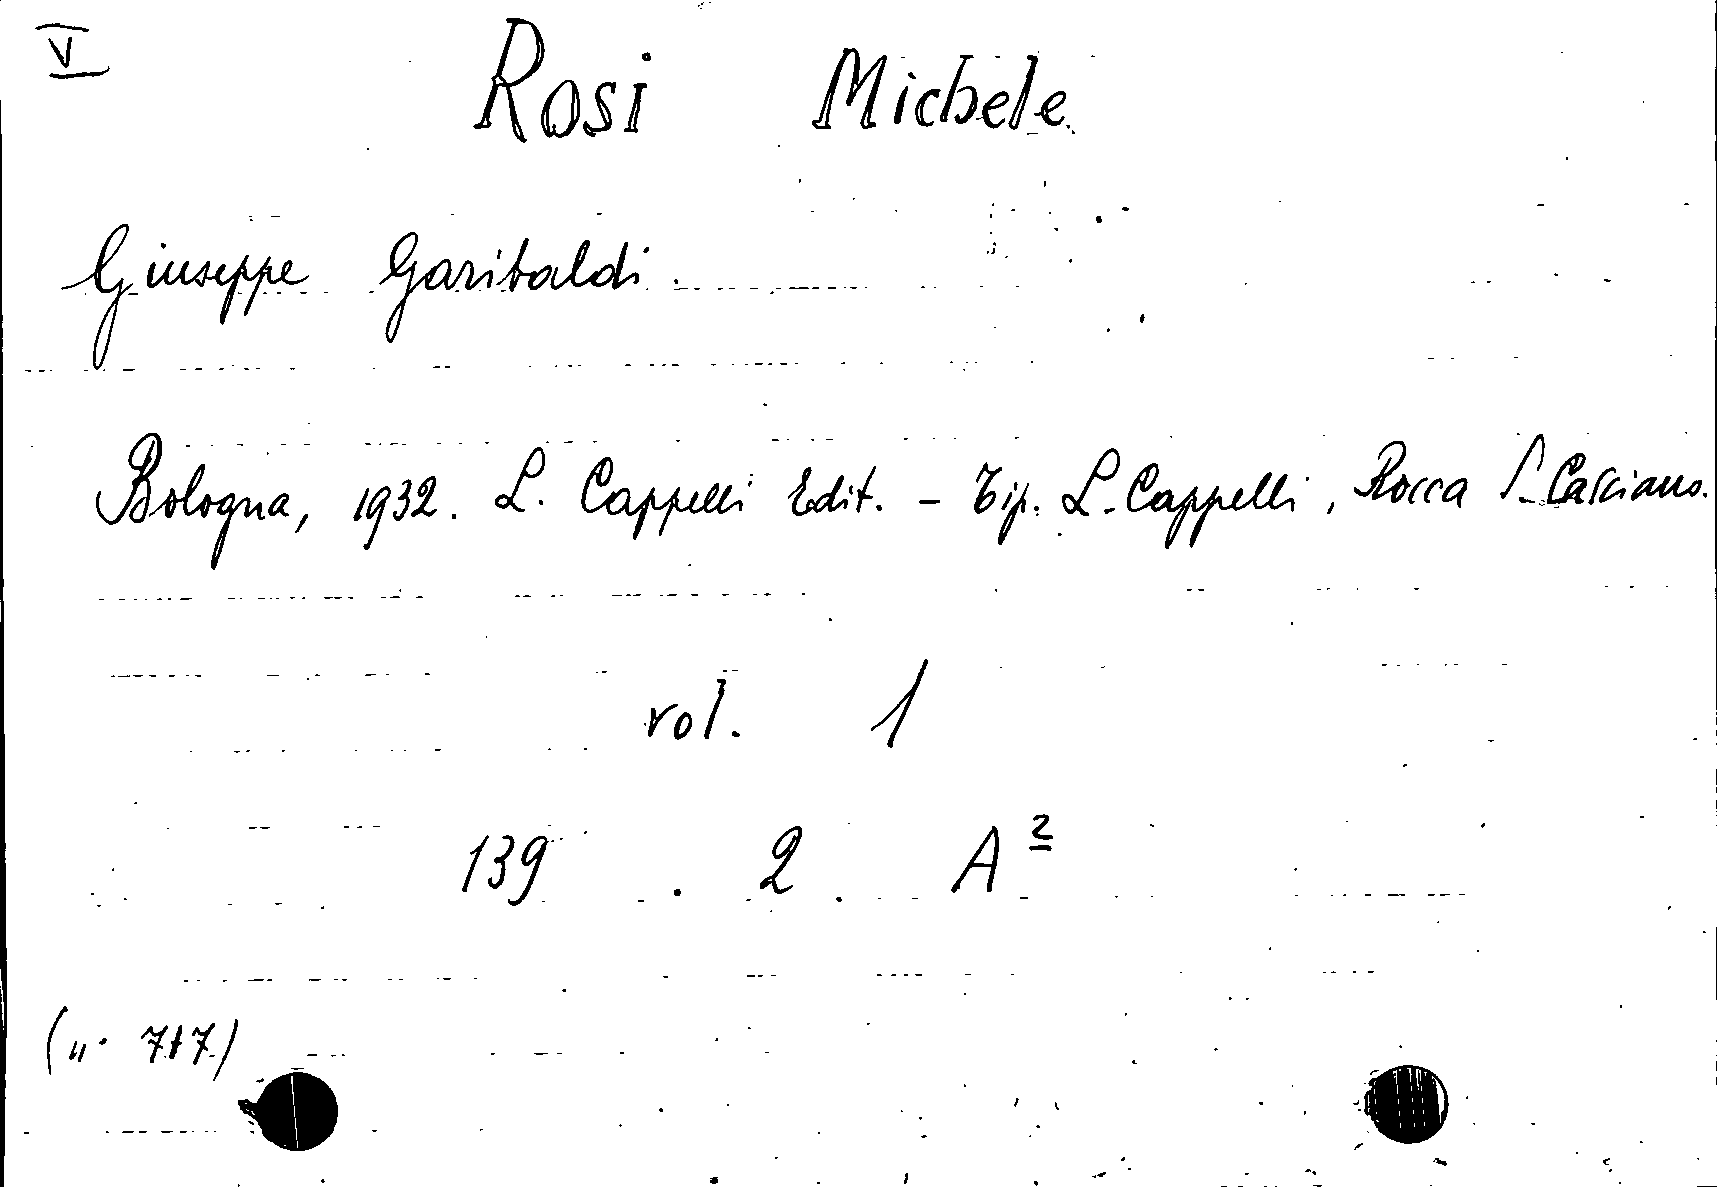 V
Rosi Michele
Giuseppe Garibaldi.
Bologna, 1932. L. Cappelli Edit. - Tip. L. Cappelli, Rocca S. Casciano.
vol. 1
139 . 2 . A²
(n. 717)